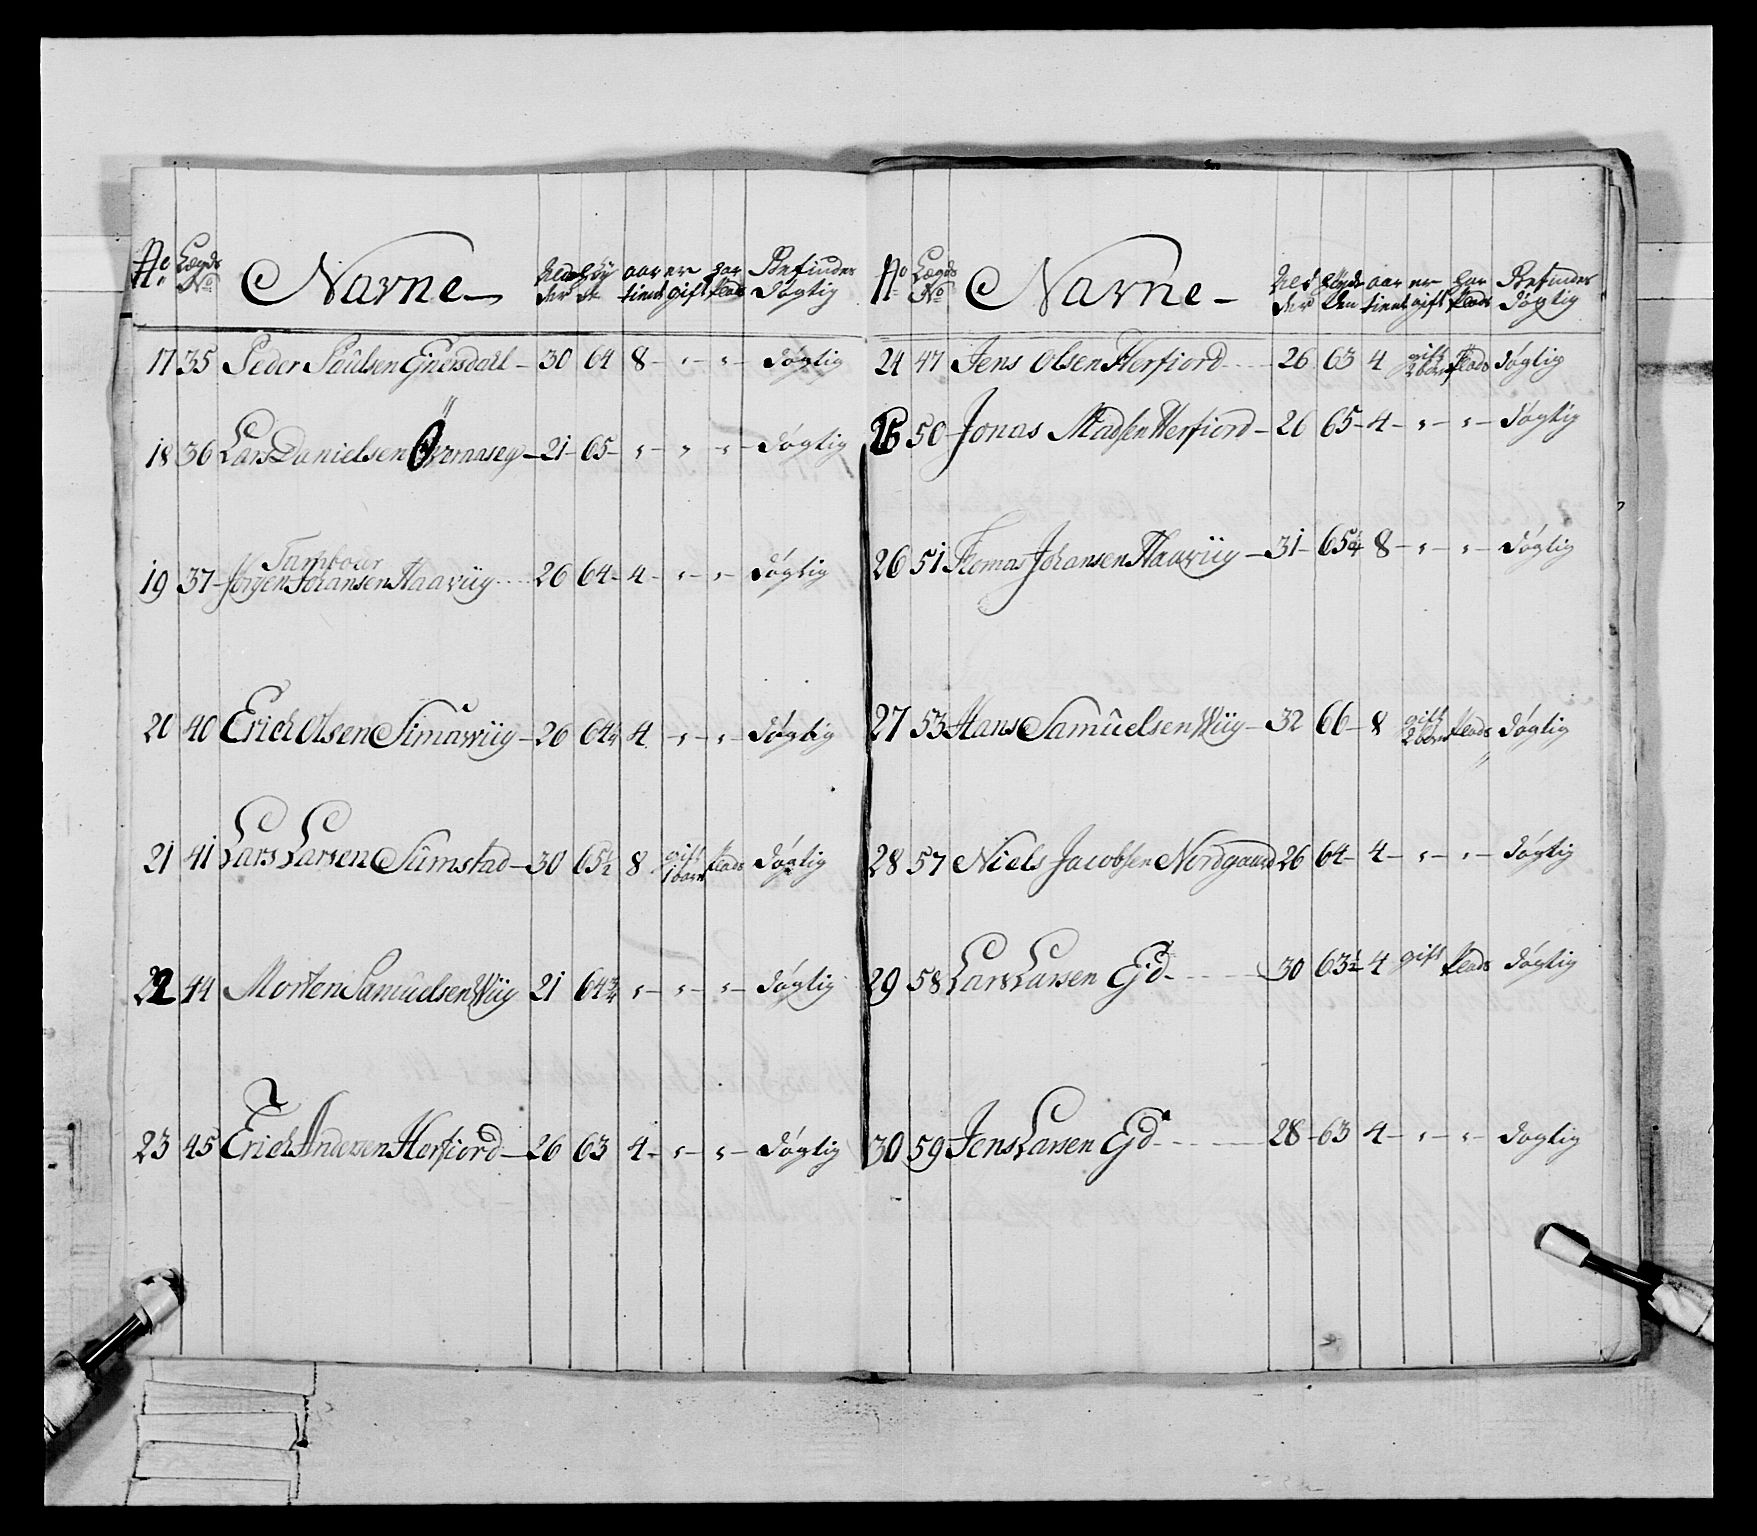 No Lægds No Navne Alder Høyde aar tient er gift har Plads Befindes døgtig
17 35 Peder Poûlsen Gjnesdall 30 64 8 „ „ døgtig
18 36 Lars Danielsen 21 65 „ „ „ døgtig
Tambour
19 37 Jørgen Johansen Haaviig 26 64 4 „ „ døgtig
20 40 Erich Olsen Simawiig 26 64 4 „ „ døgtig
21 41 Lars Larsen Sûmstad 30 65½ 8 gift 1 barn Plads døgtig
22 44 Morten Samuelsen Wiig 21 64¾ „ „ „ døgtig
23 45 Erich Andersen Herfiord 26 63 4 „ „ døgtig
No Lægds No Navne Alder Høyden aar tient er gift har Plads Befindes døgtig
24 47 Jens Olsen Herfiord 26 63 4 gift 2 børn Plads døgtig
25 50 Jonas Madsen Herfiord 26 65 4 „ „ døgtig
26 51 Tomas Johansen Haaviig 31 65¼ 8 „ „ døgtig
27 53 Hans Samûelsen Wiig 32 66 8 gift 2 børn Plads døgtig
28 57 Niels Jacobsen Nordgaard 26 64 4 „ „ døgtig
29 58 Lars Larsen Ejd 30 63½ 4 gift Plads døgtig
30 59 Jens Larsen Ejd 28 63 4 „ „ døgtig